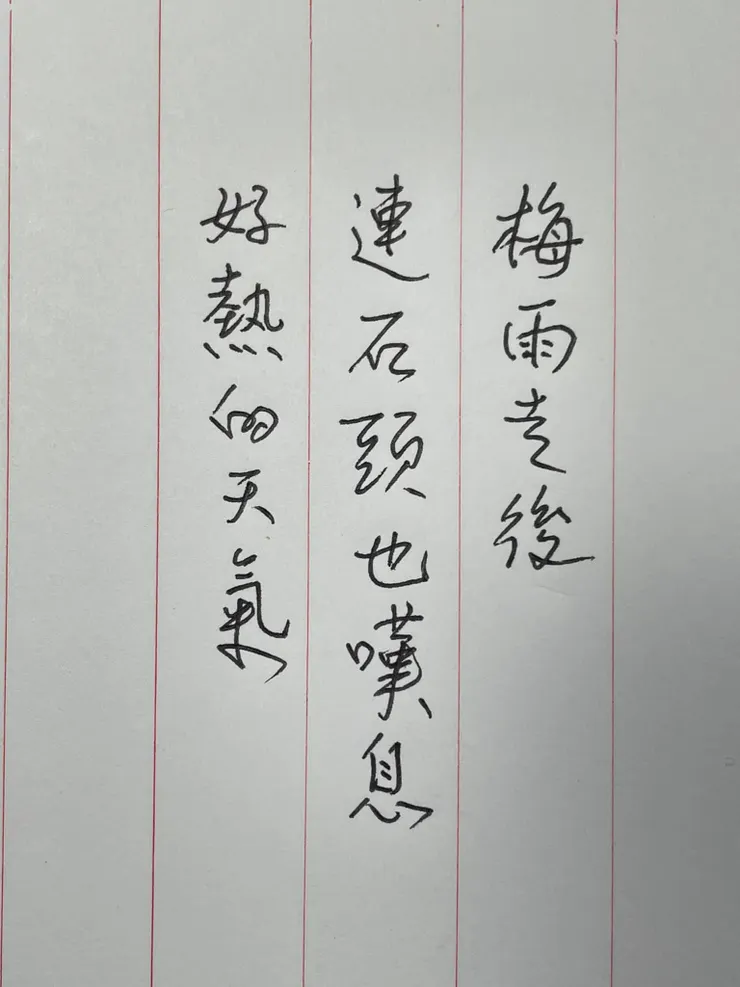 梅雨走後
連石頭也嘆息
好熱的天氣